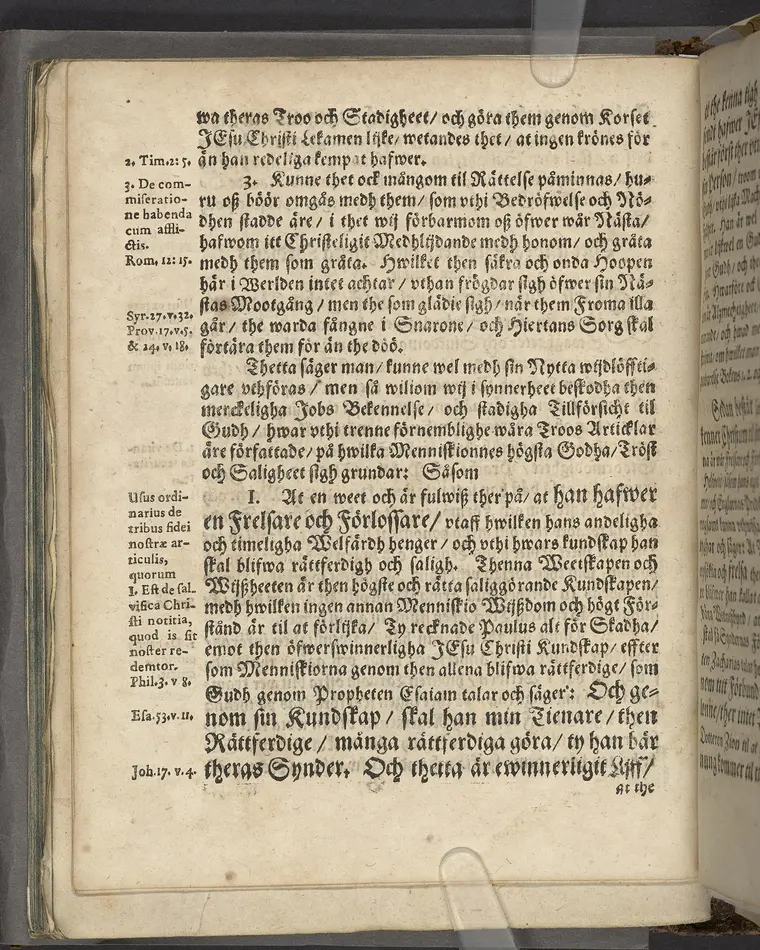 wa theras Troo och Stadigheet/ och göra them genom Korset
JEsu Christi Lekamen lijke/ wetandes thet/ at ingen krönes för
2. Tim. 2: 5.
än han redeliga kempat hafwer.
3. De com-
miseratio-
ne habenda
cum affli-
ctis.
Rom. 12: 15.
3. Kunne thet ock mångom til Rättelse påminnas/ hu-
ru oß böör omgås medh them/ som vthi Bedröfwelse och Nö-
dhen stadde äre/ i thet wij förbarmom oß öfwer wår Nästa/
hafwom itt Christeligit Medhlijdande medh honom/ och gråta
medh them som gråta. Hwilket then säkra och onda Hoopen
här i Werlden intet achtar/ vthan frögdar sigh öfwer sin Nä-
Syr. 27. v. 32.
Prov. 17. v. 5.
& 24. v. 18.
stas Mootgång/ men the som glädie sigh/ når them Froma illa
går/ the warda fångne i Snarone/ och Hiertans Sorg skal
förtära them för än the döö.
Thetta säger man/ kunne wel medh sin Nytta wijdlöffti-
gare vthföras/ men så wiliom wij i synnerheet beskodha then
merckeligha Jobs Bekennelse/ och stadigha Tillförsicht til
Gudh/ hwar vthi trenne förnemblighe wåra Troos Articklar
äre författade/ på hwilka Menniskionnes högsta Godha/ Tröst
och Saligheet sigh grundar: Såsom
Usus ordi-
narius de
tribus fidei
nostræ ar-
ticulis,
quorum
1. Est de sal-
vifica Chri-
sti notitia,
quod is sit
noster re-
demtor.
Phil. 3. v 8.
I. At en weet och är fulwiß ther på/ at han hafwer
en Frelsare och Förlossare/ vtaff hwilken hans andeligha
och timeligha Welfärdh henger/ och vthi hwars kundskap han
skal blifwa rättferdigh och saligh. Thenna Weetskapen och
Wijßheeten är then högste och rätta saliggörande Kundskapen/
medh hwilken ingen annan Menniskio Wijßdom och högt För-
stånd är til at förlijka/ Ty recknade Paulus alt för Skadha/
emot then öfwerswinnerligha JEsu Christi Kundskap/ effter
som Menniskiorna genom then allena blifwa rättferdige/ som
Gudh genom Propheten Esaiam talar och säger: Och ge-
Esa. 53. v. 11.
nom sin Kundskap/ skal han min Tienare/ then
Rättferdige/ många rättferdiga göra/ ty han bär
Joh. 17. v. 4.
theras Synder. Och thetta är ewinnerligit Lijff/
at the